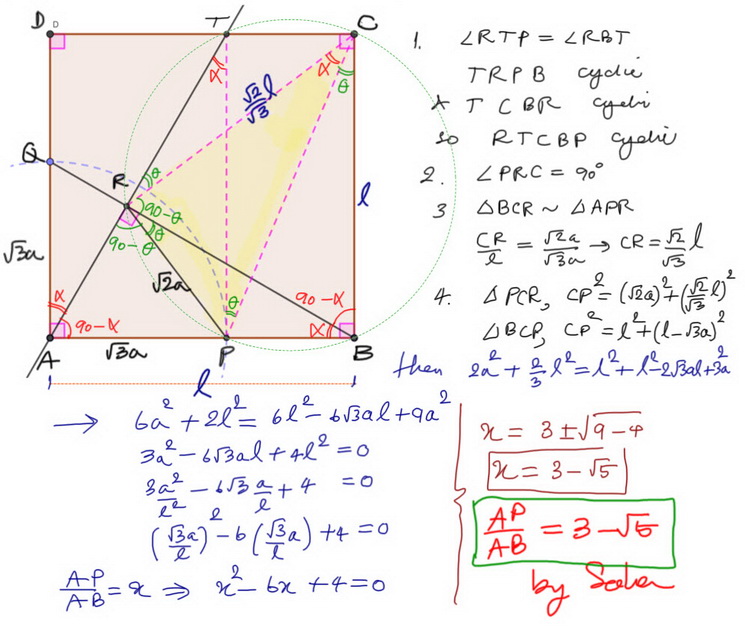 D D T C
α α θ
√2/√3 l
Q R θ
90-θ
90-θ θ
l
√3a
√2a
α 90-α θ 90-α α
A √3a P B
l
1. ∠RTP = ∠RBT
TRPB cyclic
∧ TCBR cyclic
so RTCBP cyclic
2. ∠PRC = 90°
3 △BCR ~ △APR
CR/l = √2a/√3a → CR = √2/√3 l
4. △PCR, CP² = (√2a)² + (√2/√3 l)²
△BCP, CP² = l² + (l-√3a)²
then 2a² + 2/3 l² = l² + l² - 2√3al + 3a²
→ 6a² + 2l² = 6l² - 6√3al + 9a²
3a² - 6√3al + 4l² = 0
3a²/l² - 6√3 a/l + 4 = 0
(√3a/l)² - 6(√3a/l) + 4 = 0
AP/AB = x ⇒ x² - 6x + 4 = 0
x = 3 ± √9-4
x = 3 - √5
AP/AB = 3 - √5
by Saba